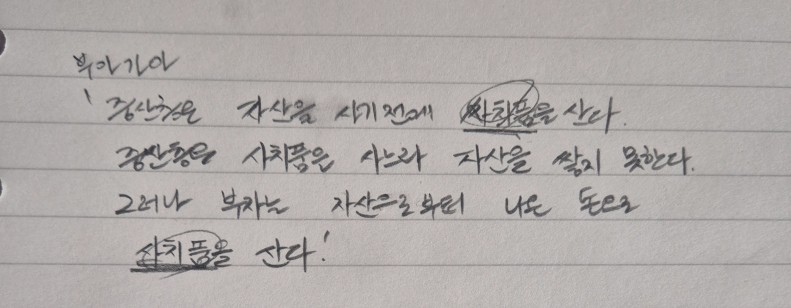 부아가아
'중산층은 자산을 사기전에 사치품을 산다.
중산층은 사치품은 사느라 자산을 쌓지 못한다.
그러나 부자는 자산으로부터 나온 돈으로
사치품을 산다!